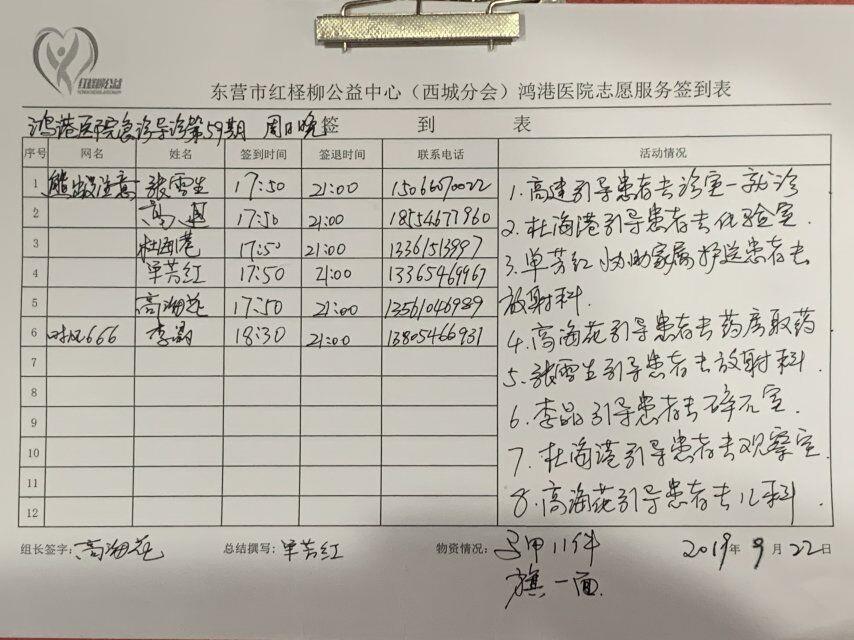 红柽柳公益
东营市红柽柳公益中心（西城分会）鸿港医院志愿服务签到表
鸿港医院急诊导诊第59期 周日晚 签到表
序号 网名 姓名 签到时间 签退时间 联系电话 活动情况
1 熊出没注意 张雪生 17:50 21:00 15066070022
2 高建 17:50 21:00 18554671960
3 杜海港 17:50 21:00 13361513997
4 单芳红 17:50 21:00 13365469967
5 高海花 17:50 21:00 13561046989
6 时风666 李晶 18:30 21:00 13805466931
7
8
9
10
11
12
1.高建引导患者去诊室一就诊
2.杜海港引导患者去化验室
3.单芳红协助家属护送患者去
放射科.
4.高海花引导患者去药房取药
5.张雪生引导患者去放射科.
6.李晶引导患者去碎石室.
7.杜海港引导患者去观察室.
8.高海花引导患者去儿科.
组长签字：高海花 总结撰写：单芳红 物资情况：马甲11件 2019年9月22日
旗一面.